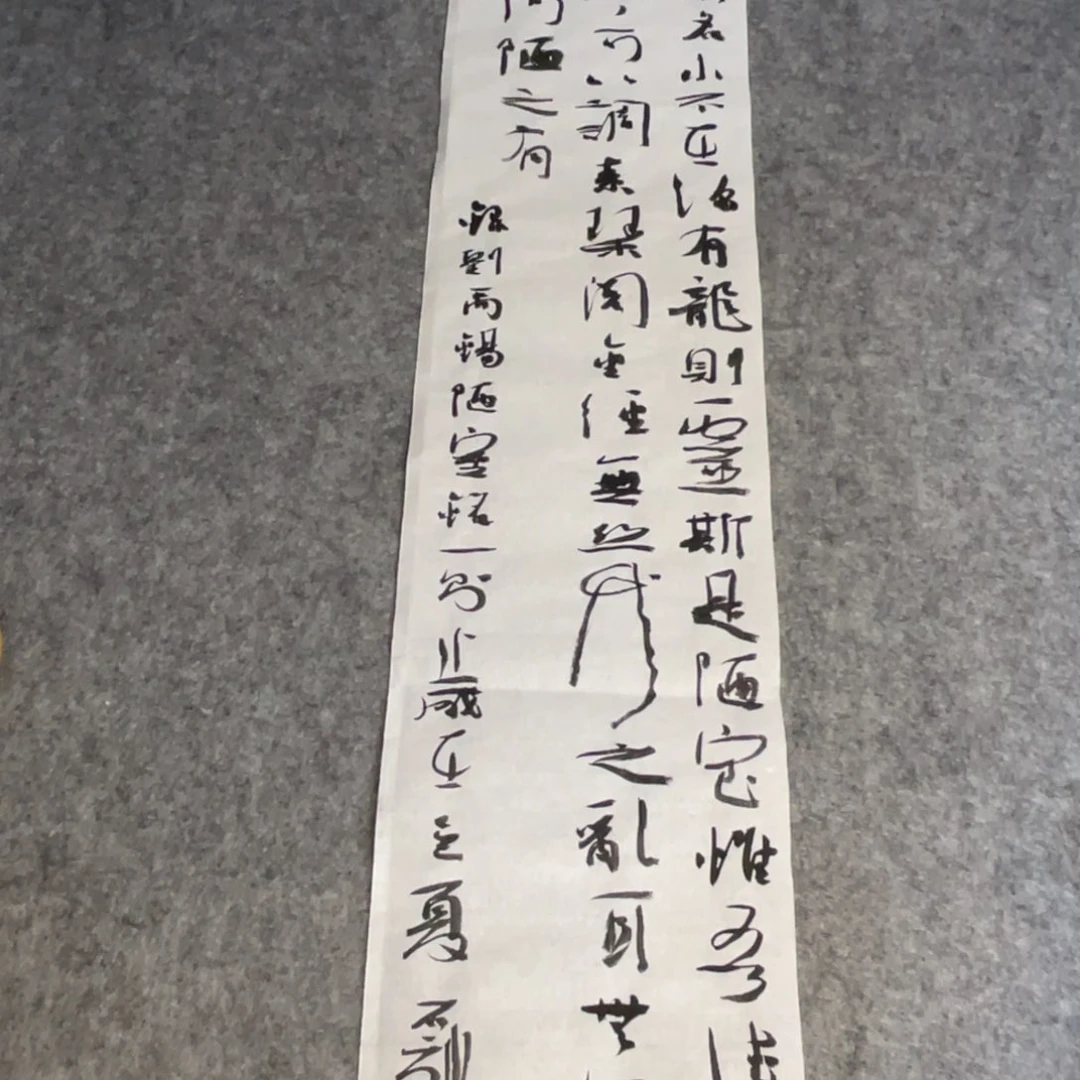 名水不在深有龍則靈斯是陋室惟吾德
可以調素琴閱金經無絲竹之亂耳無
何陋之有
錄劉禹錫陋室銘一則歲在夏